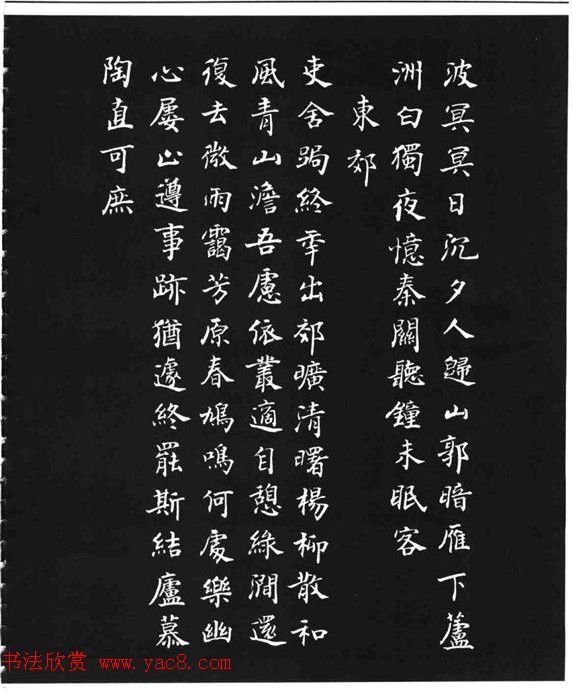 波冥冥日沉夕人歸山郭暗雁下蘆
洲白獨夜憶秦關聽鐘未眠客
東郊
吏舍跼終年出郊曠清曙楊柳散和
風青山澹吾慮依叢適自憩緣澗還
復去微雨靄芳原春鳩鳴何處樂幽
心屢止遵事跡猶遽終罷斯結廬慕
陶直可庶
书法欣赏 www.yac8.com